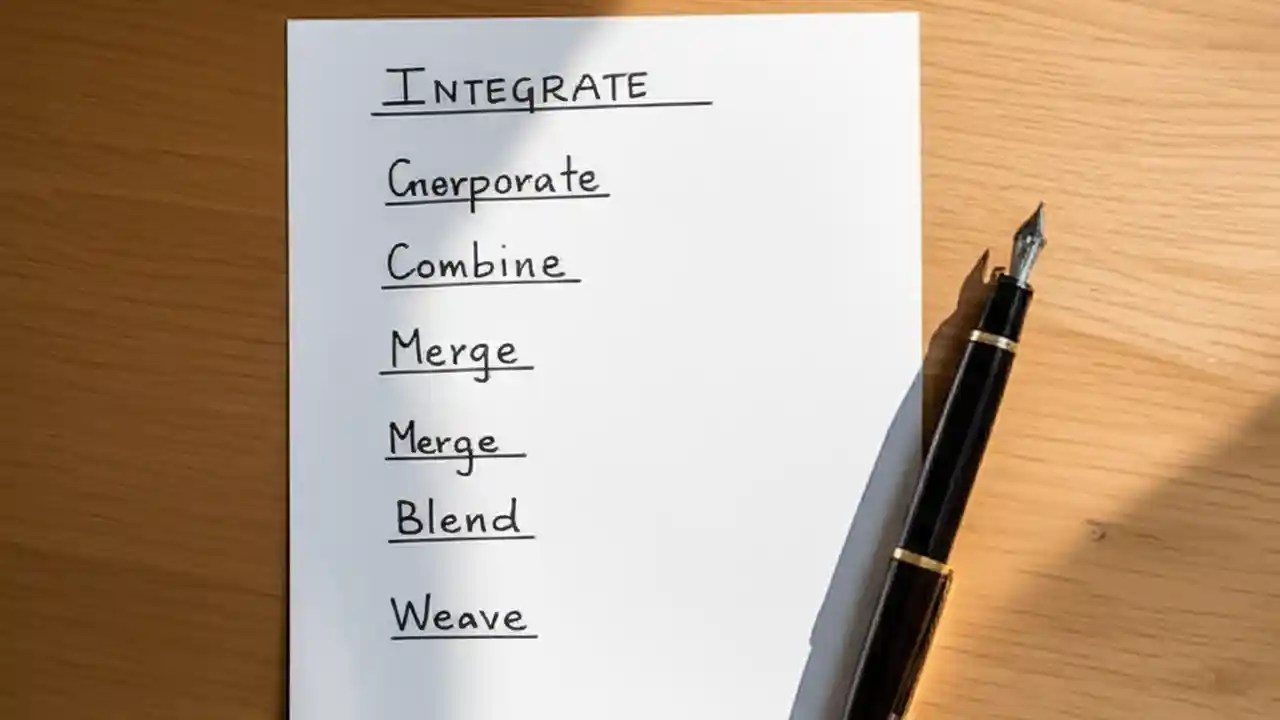 INTEGRATE
Cnerporate
Combine
Merge
Merge
Blend
Weave